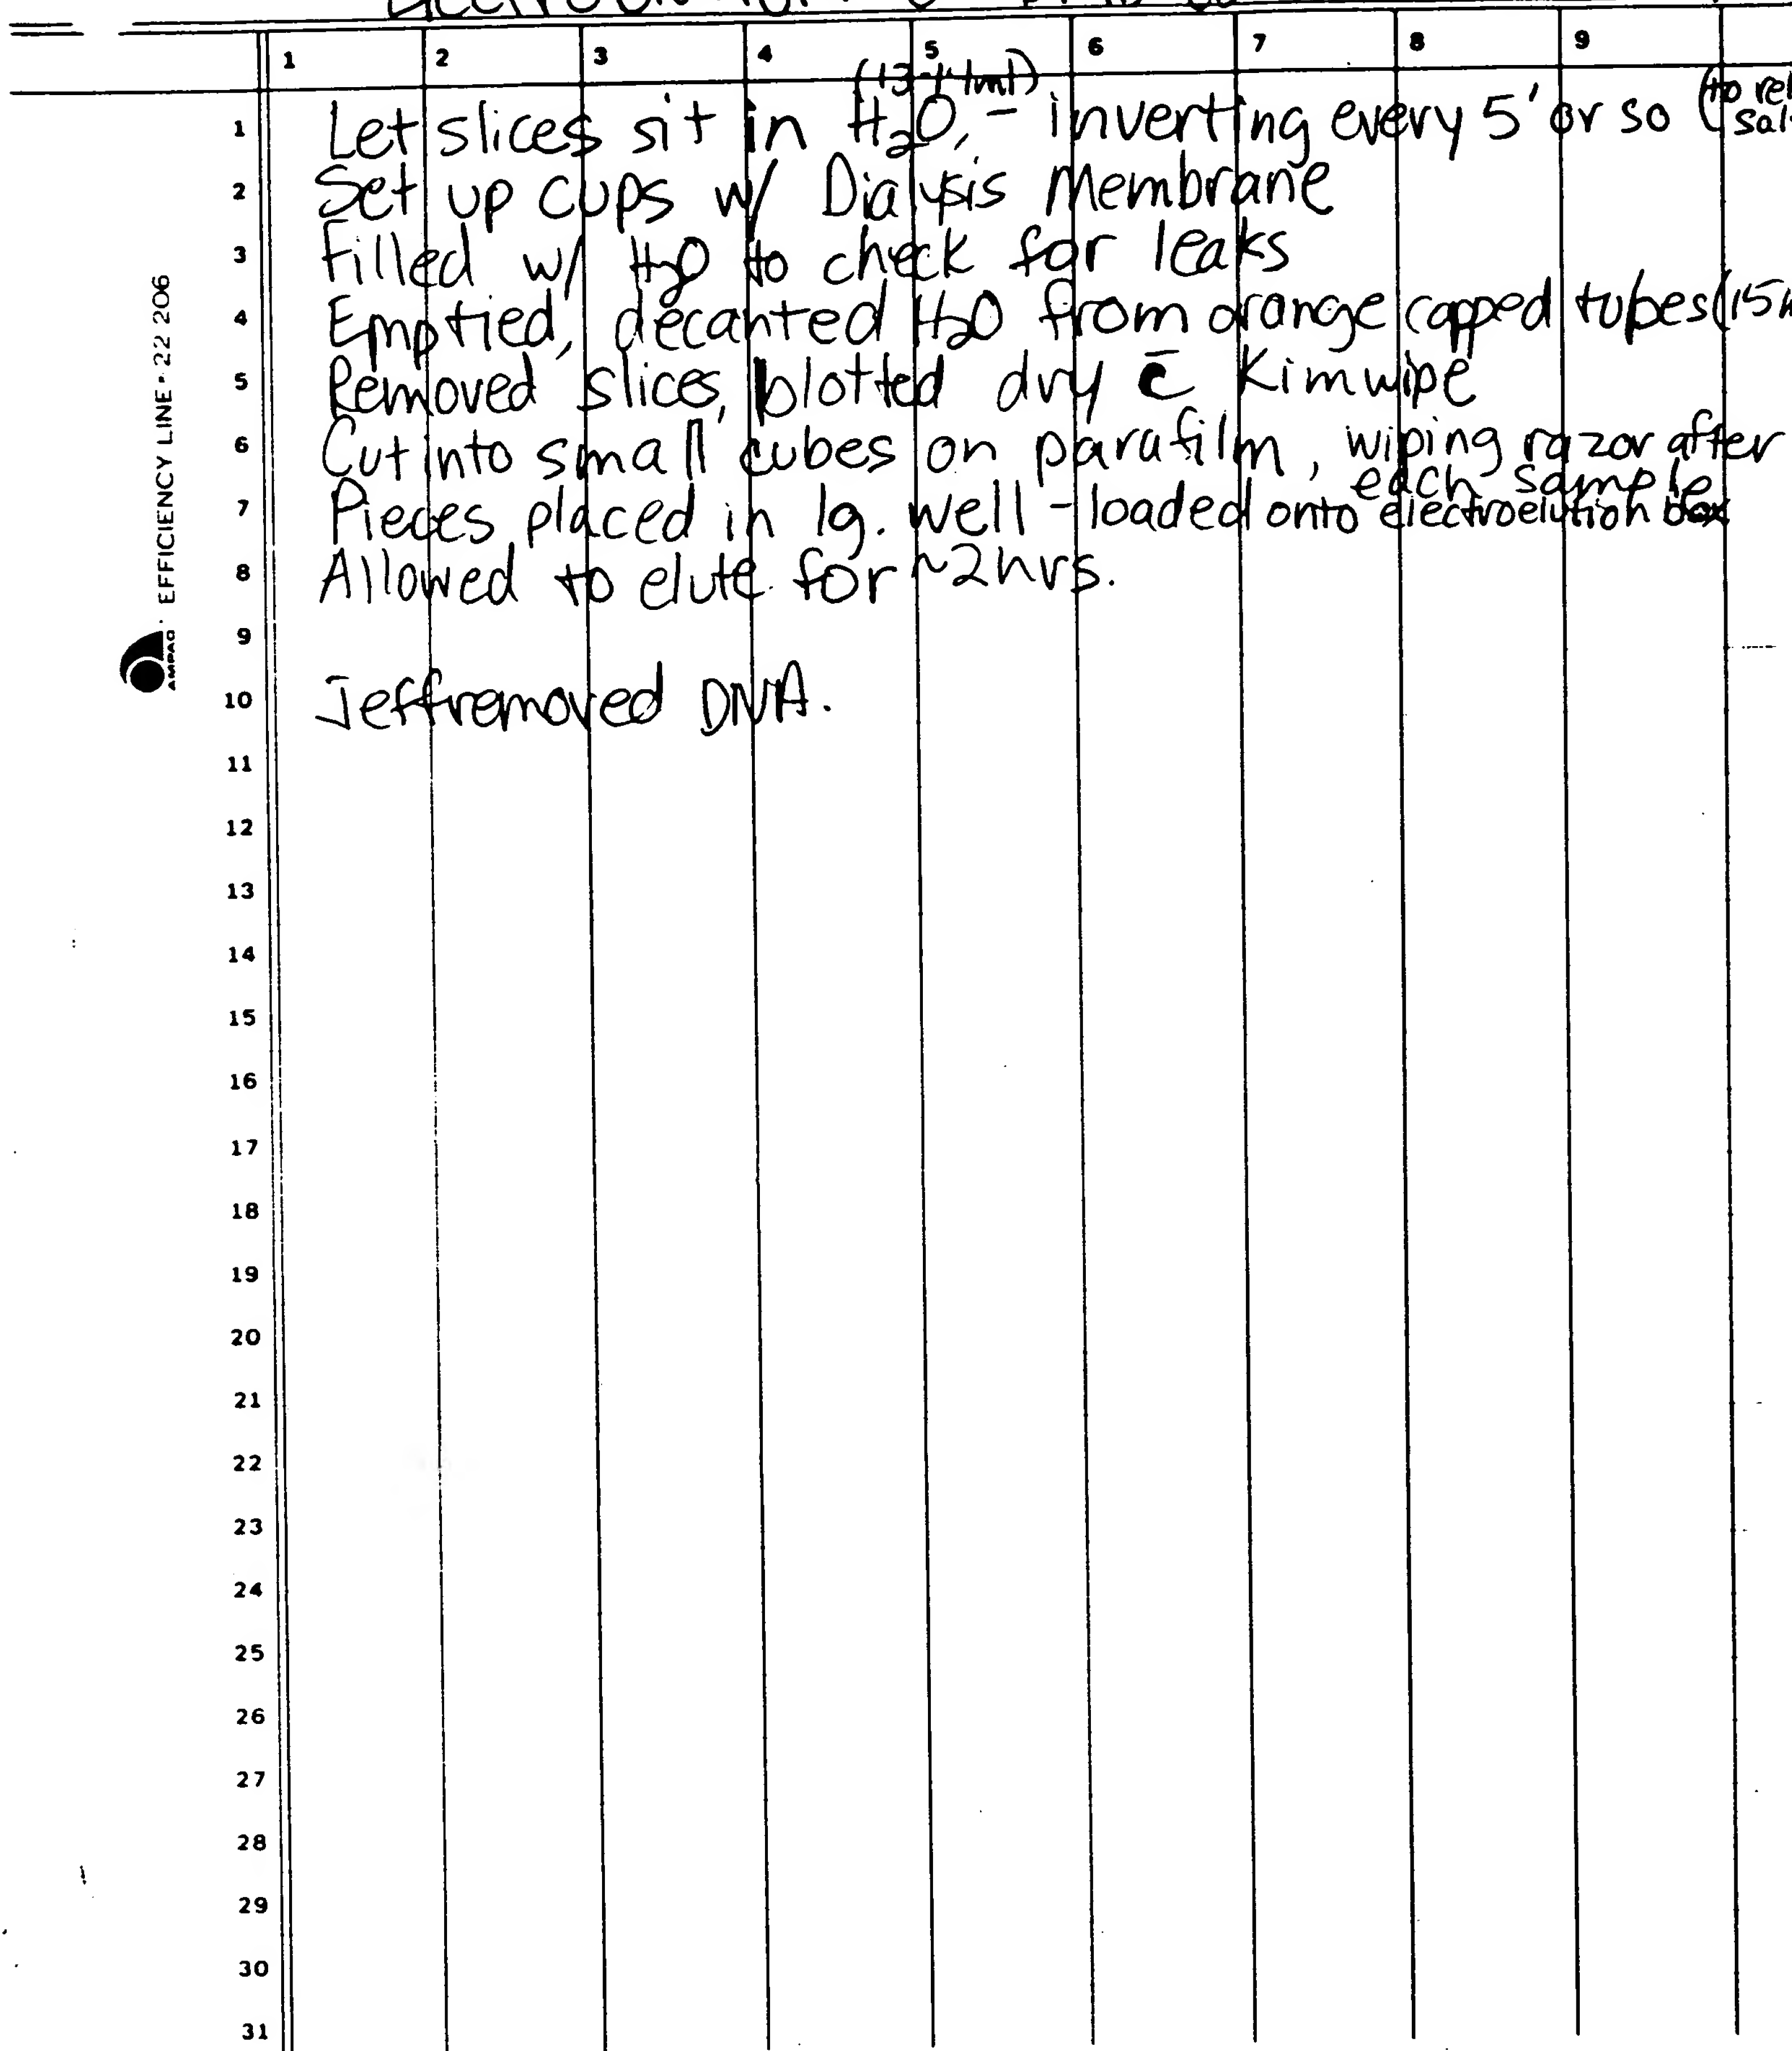 1 2 3 4 5 6 7 8 9
(13-14ml)
1 Let slices sit in H₂O, - inverting every 5' or so (to rel
sal
2 Set up cups w/ Dialysis Membrane
3 Filled w/ H₂O to check for leaks
4 Emptied, decanted H₂O from orange capped tubes (15m
5 Removed slices, blotted dry c̄ Kimwipe
6 Cut into small cubes on parafilm, wiping razor after
each sample
7 Pieces placed in lg. well - loaded onto electroelution box
8 Allowed to elute for ~2hrs.
9
10 Jeff removed DNA.
11
12
13
14
15
16
17
18
19
20
21
22
23
24
25
26
27
28
29
30
31
AMPAD · EFFICIENCY LINE · 22 206